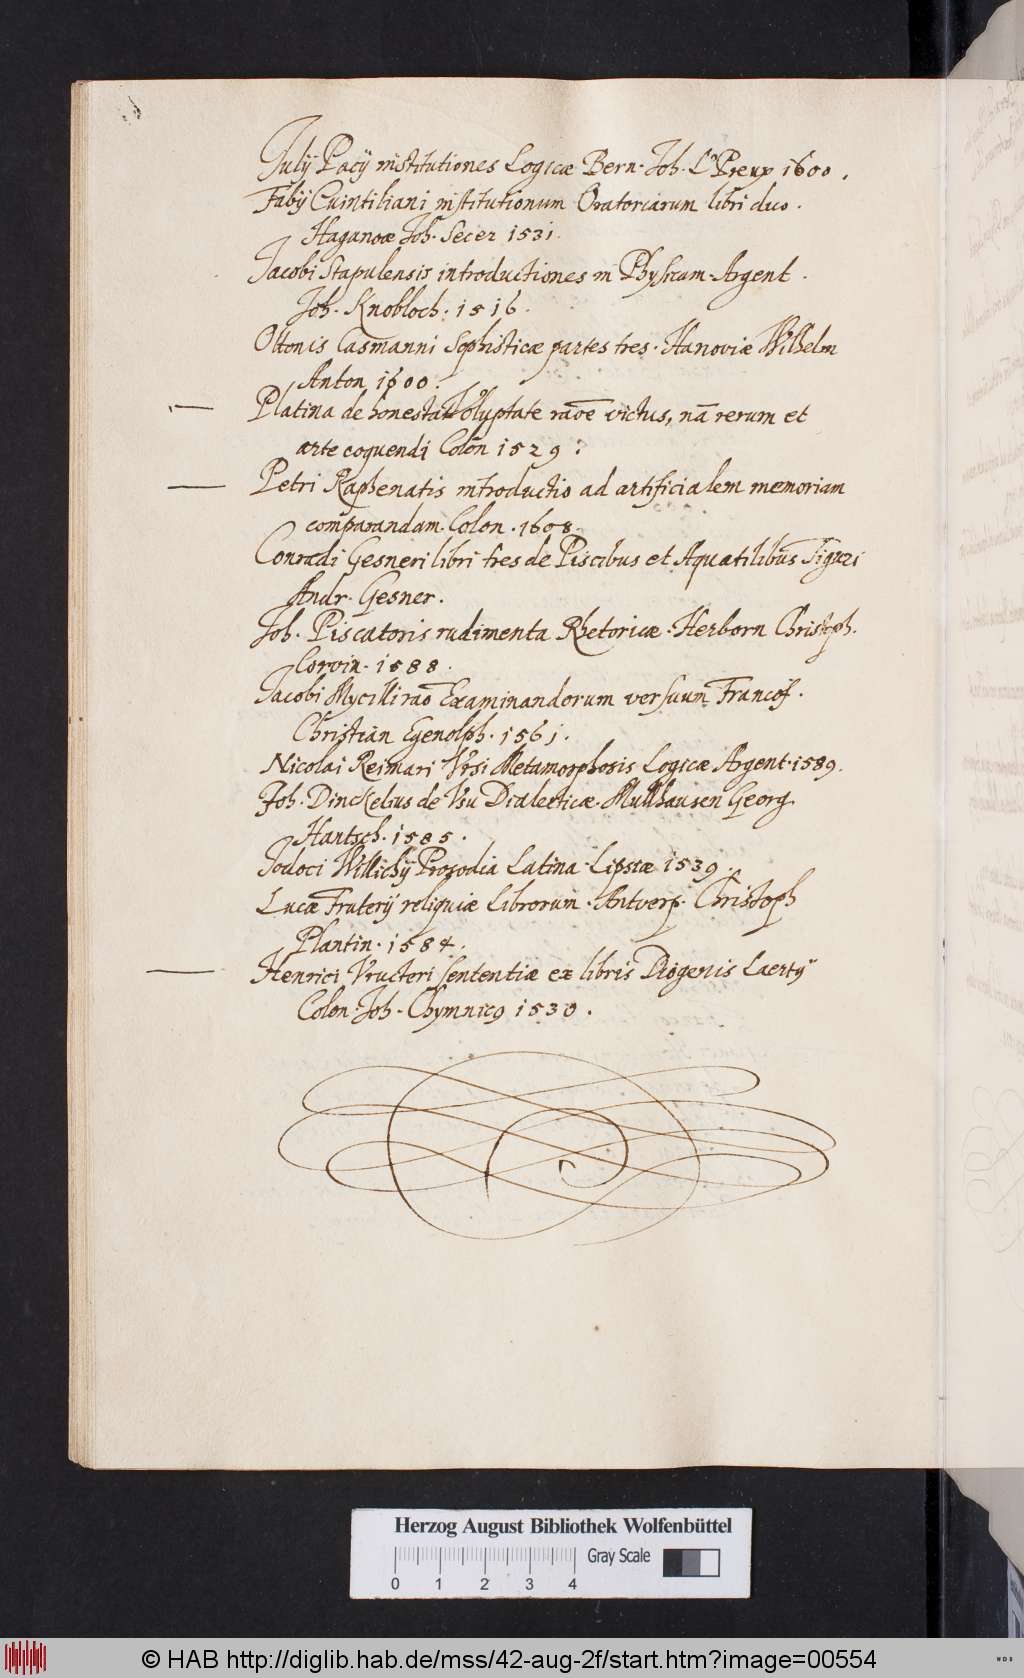 Julij Pacij institutiones Logicæ Bern. Joh. L' Preux 1600.
Fabij Quintiliani institutionum Oratoriarum libri duo.
Haganoæ Joh. Secer 1531.
Jacobi Stapulensis introductiones in Physicam. Argent.
Joh. Knobloch. 1516.
Ottonis Casmanni Sophisticæ partes tres. Hanoviæ Wilhelm
Anton 1600.
Platina de honesta Voluptate raõe victus, nã rerum et
arte coquendi Colõn 1529.
Petri Raphenatis introductio ad artificialem memoriam
comparandam. Colon. 1608.
Conradi Gesneri libri tres de Piscibus et Aquatilibus Tiguri
Andr. Gesner.
Joh. Piscatoris rudimenta Rhetoricæ. Herborn Christoph.
Corvin. 1588.
Jacobi Mycilli raõ Examinandorum versuum Francof.
Christian Egenolph. 1561.
Nicolai Reimari Ursi Metamorphosis Logicæ Argent. 1589.
Joh. Dinckelius de Usu Dialecticæ. Mullhausen Georg
Hantsch. 1585.
Jodoci Willichij Prosodia Latina. Lipsiæ 1539.
Lucæ Fruterij reliquiæ librorum. Antverp. Christoph
Plantin. 1584.
Henrici Vructeri sententiæ ex libris Diogenis Laertij
Colon. Joh. Chymnicg 1530.
Herzog August Bibliothek Wolfenbüttel
Gray Scale
0 1 2 3 4
© HAB http://diglib.hab.de/mss/42-aug-2f/start.htm?image=00554